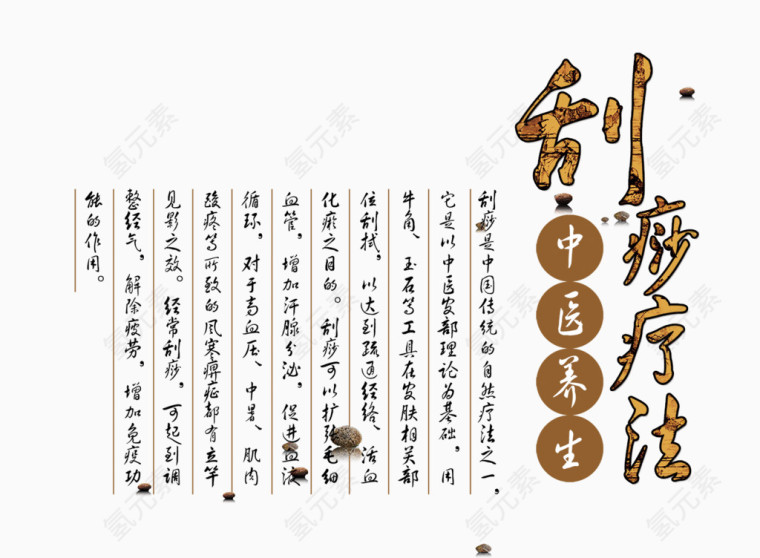 刮痧疗法
中医养生
刮痧是中国传统的自然疗法之一，
它是以中医皮部理论为基础，用
牛角、玉石等工具在皮肤相关部
位刮拭，以达到疏通经络、活血
化瘀之目的。刮痧可以扩张毛细
血管，增加汗腺分泌，促进血液
循环，对于高血压、中暑、肌肉
酸疼等所致的风寒痹症都有立竿
见影之效。经常刮痧，可起到调
整经气，解除疲劳，增加免疫功
能的作用。
氢元素